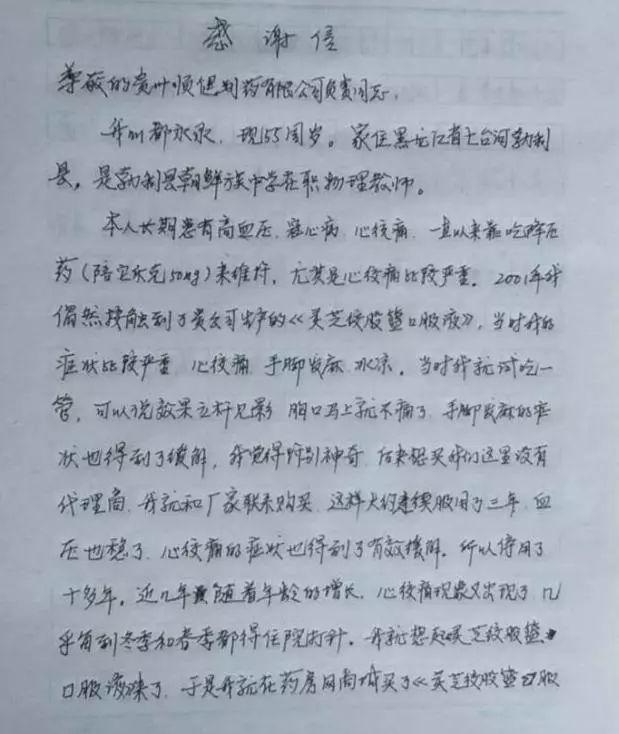 感谢信
尊敬的贵州顺健制药有限公司负责同志.
我叫都永永，现55周岁。家住黑龙江省七台河勃利
县，是勃利县朝鲜族中学在职物理教师。
本人长期患有高血压.冠心病.心绞痛.一直以来靠吃降压
药(倍他乐克50mg)来维持.尤其是心绞痛比较严重.2001年我
偶然接触到了贵公司生产的《灵芝绞股蓝口服液》,当时我的
症状比较严重.心绞痛.手脚发麻.冰凉.当时我就试吃一
管,可以说效果立杆见影.胸口马上就不痛了.手脚发麻的症
状也得到了缓解,我觉得特别神奇.后来想买我们这里没有
代理商.我就和厂家联系购买.这样大约连续服用了三年.血
压也稳了.心绞痛的症状也得到了有效缓解.所以停用了
十多年.近几年随着年龄的增长.心绞痛现象又出现了.几
乎每到冬季和春季都得住院打针.我就想起灵芝绞股蓝
口服液来了.于是我就在药房网商城买了《灵芝绞股蓝口服